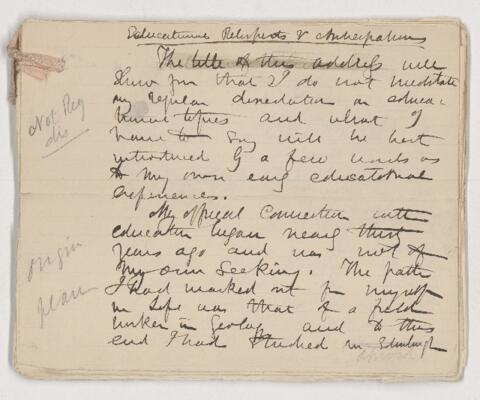 Educational Retrospects & Anticipations
The title of this address will
show you that I do not meditate
any regular dissertation on educa-
tional topics and what I
have to say will be best
introduced by a few words as
to my own early educational
experiences.
My official connection with
education began nearly thirty
years ago and was not of
my own seeking. The path
I had marked out for myself
in life was that of a field
worker in geology and to this
end I had studied in Edinburgh
Not Reg
origin
plan